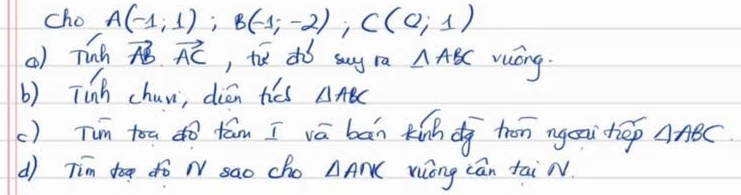 Cho A(-1; 1) ; B(-1; -2) ; C(0; 1)
a) Tính \overrightarrow{AB}. \overrightarrow{AC} , từ đó suy ra ΔABC vuông.
b) Tính chu vi, diện tích ΔABC
c) Tìm toạ độ tâm I và bán kính đg tròn ngoại tiếp ΔABC.
d) Tìm toạ độ N sao cho ΔANC vuông cân tại N.